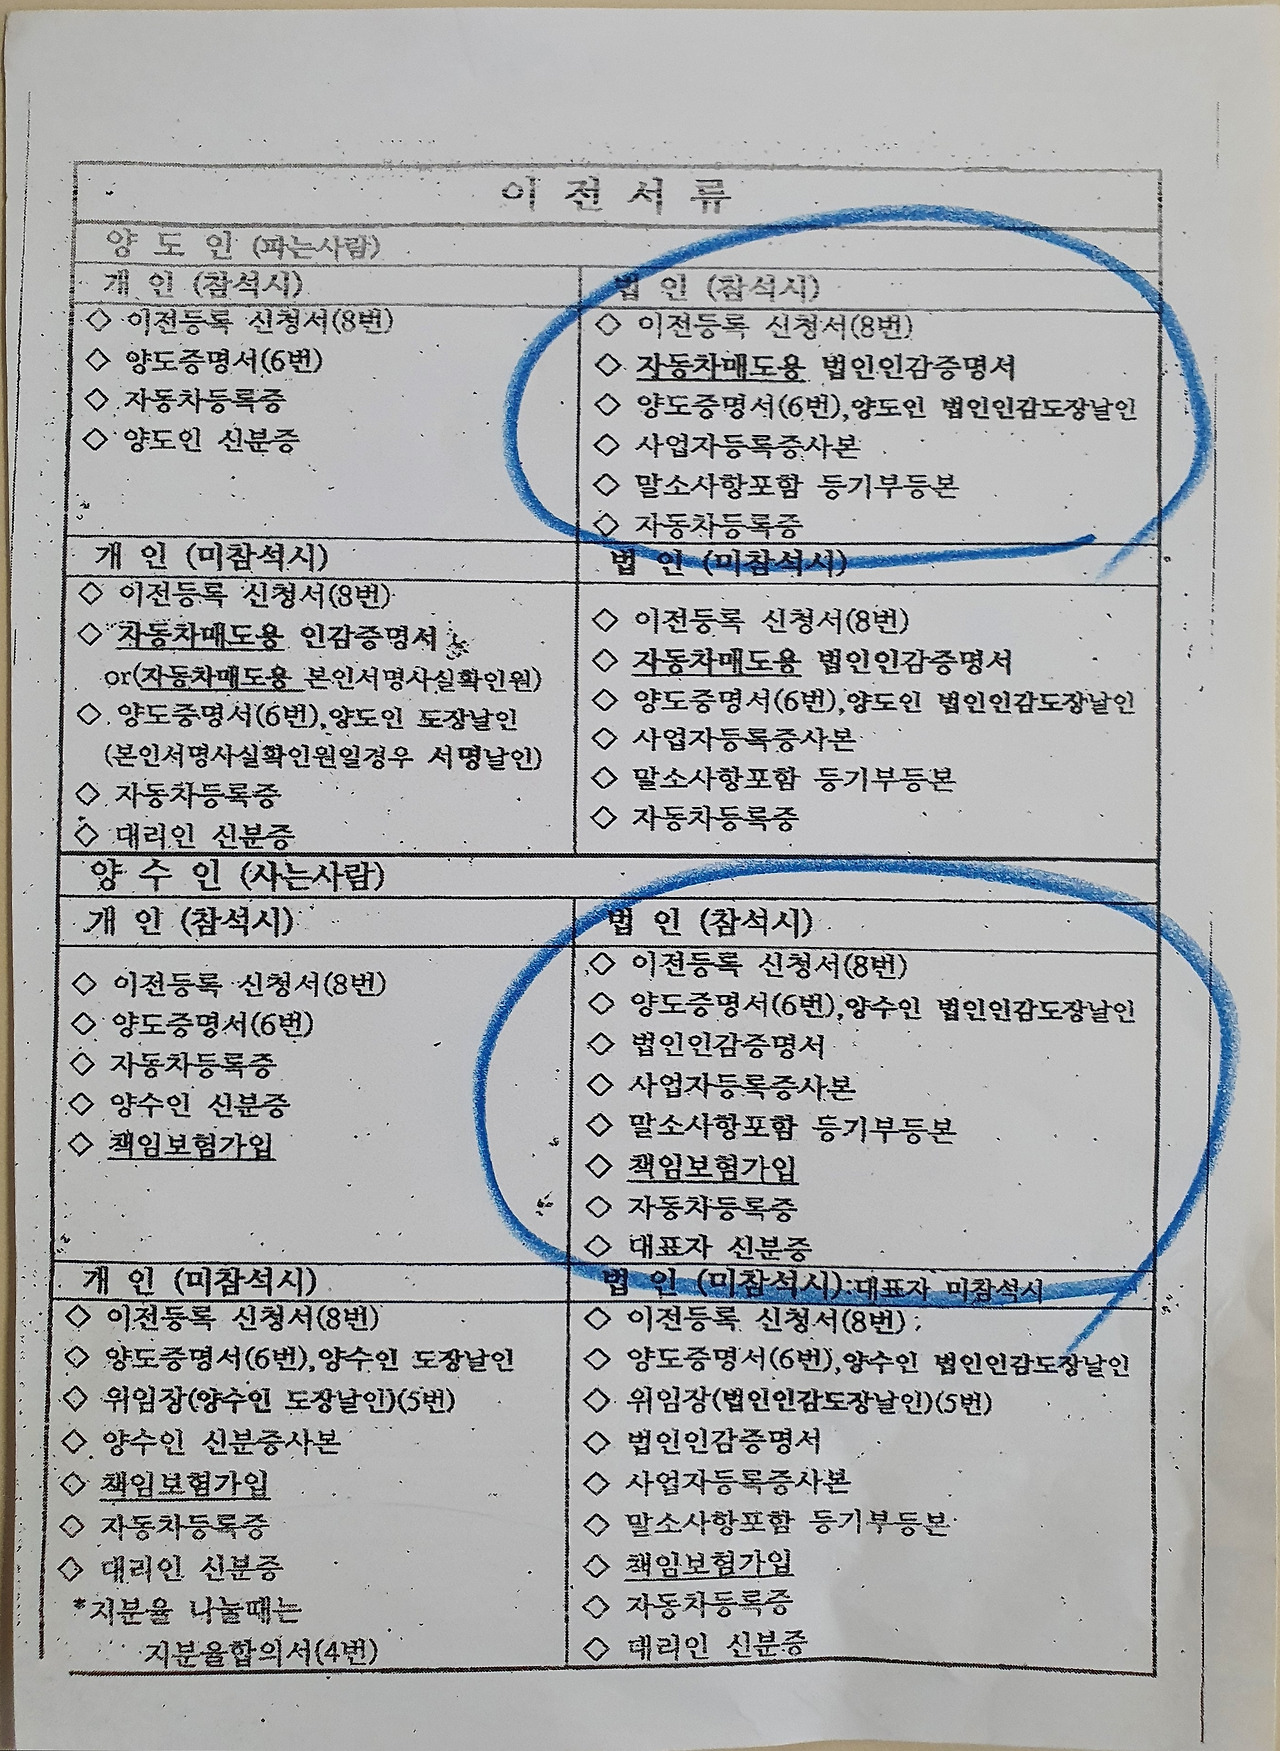 이 전 서 류
양 도 인 (파는사람)
개 인 (참석시)
◇ 이전등록 신청서(8번)
◇ 양도증명서(6번)
◇ 자동차등록증
◇ 양도인 신분증
법 인 (참석시)
◇ 이전등록 신청서(8번)
◇ 자동차매도용 법인인감증명서
◇ 양도증명서(6번),양도인 법인인감도장날인
◇ 사업자등록증사본
◇ 말소사항포함 등기부등본
◇ 자동차등록증
개 인 (미참석시)
◇ 이전등록 신청서(8번)
◇ 자동차매도용 인감증명서
or(자동차매도용 본인서명사실확인원)
◇ 양도증명서(6번),양도인 도장날인
(본인서명사실확인원일경우 서명날인)
◇ 자동차등록증
◇ 대리인 신분증
법 인 (미참석시)
◇ 이전등록 신청서(8번)
◇ 자동차매도용 법인인감증명서
◇ 양도증명서(6번),양도인 법인인감도장날인
◇ 사업자등록증사본
◇ 말소사항포함 등기부등본
◇ 자동차등록증
양 수 인 (사는사람)
개 인 (참석시)
◇ 이전등록 신청서(8번)
◇ 양도증명서(6번)
◇ 자동차등록증
◇ 양수인 신분증
◇ 책임보험가입
법 인 (참석시)
◇ 이전등록 신청서(8번)
◇ 양도증명서(6번),양수인 법인인감도장날인
◇ 법인인감증명서
◇ 사업자등록증사본
◇ 말소사항포함 등기부등본
◇ 책임보험가입
◇ 자동차등록증
◇ 대표자 신분증
개 인 (미참석시)
◇ 이전등록 신청서(8번)
◇ 양도증명서(6번),양수인 도장날인
◇ 위임장(양수인 도장날인)(5번)
◇ 양수인 신분증사본
◇ 책임보험가입
◇ 자동차등록증
◇ 대리인 신분증
*지분율 나눌때는
지분율합의서(4번)
법 인 (미참석시):대표자 미참석시
◇ 이전등록 신청서(8번)
◇ 양도증명서(6번),양수인 법인인감도장날인
◇ 위임장(법인인감도장날인)(5번)
◇ 법인인감증명서
◇ 사업자등록증사본
◇ 말소사항포함 등기부등본
◇ 책임보험가입
◇ 자동차등록증
◇ 대리인 신분증